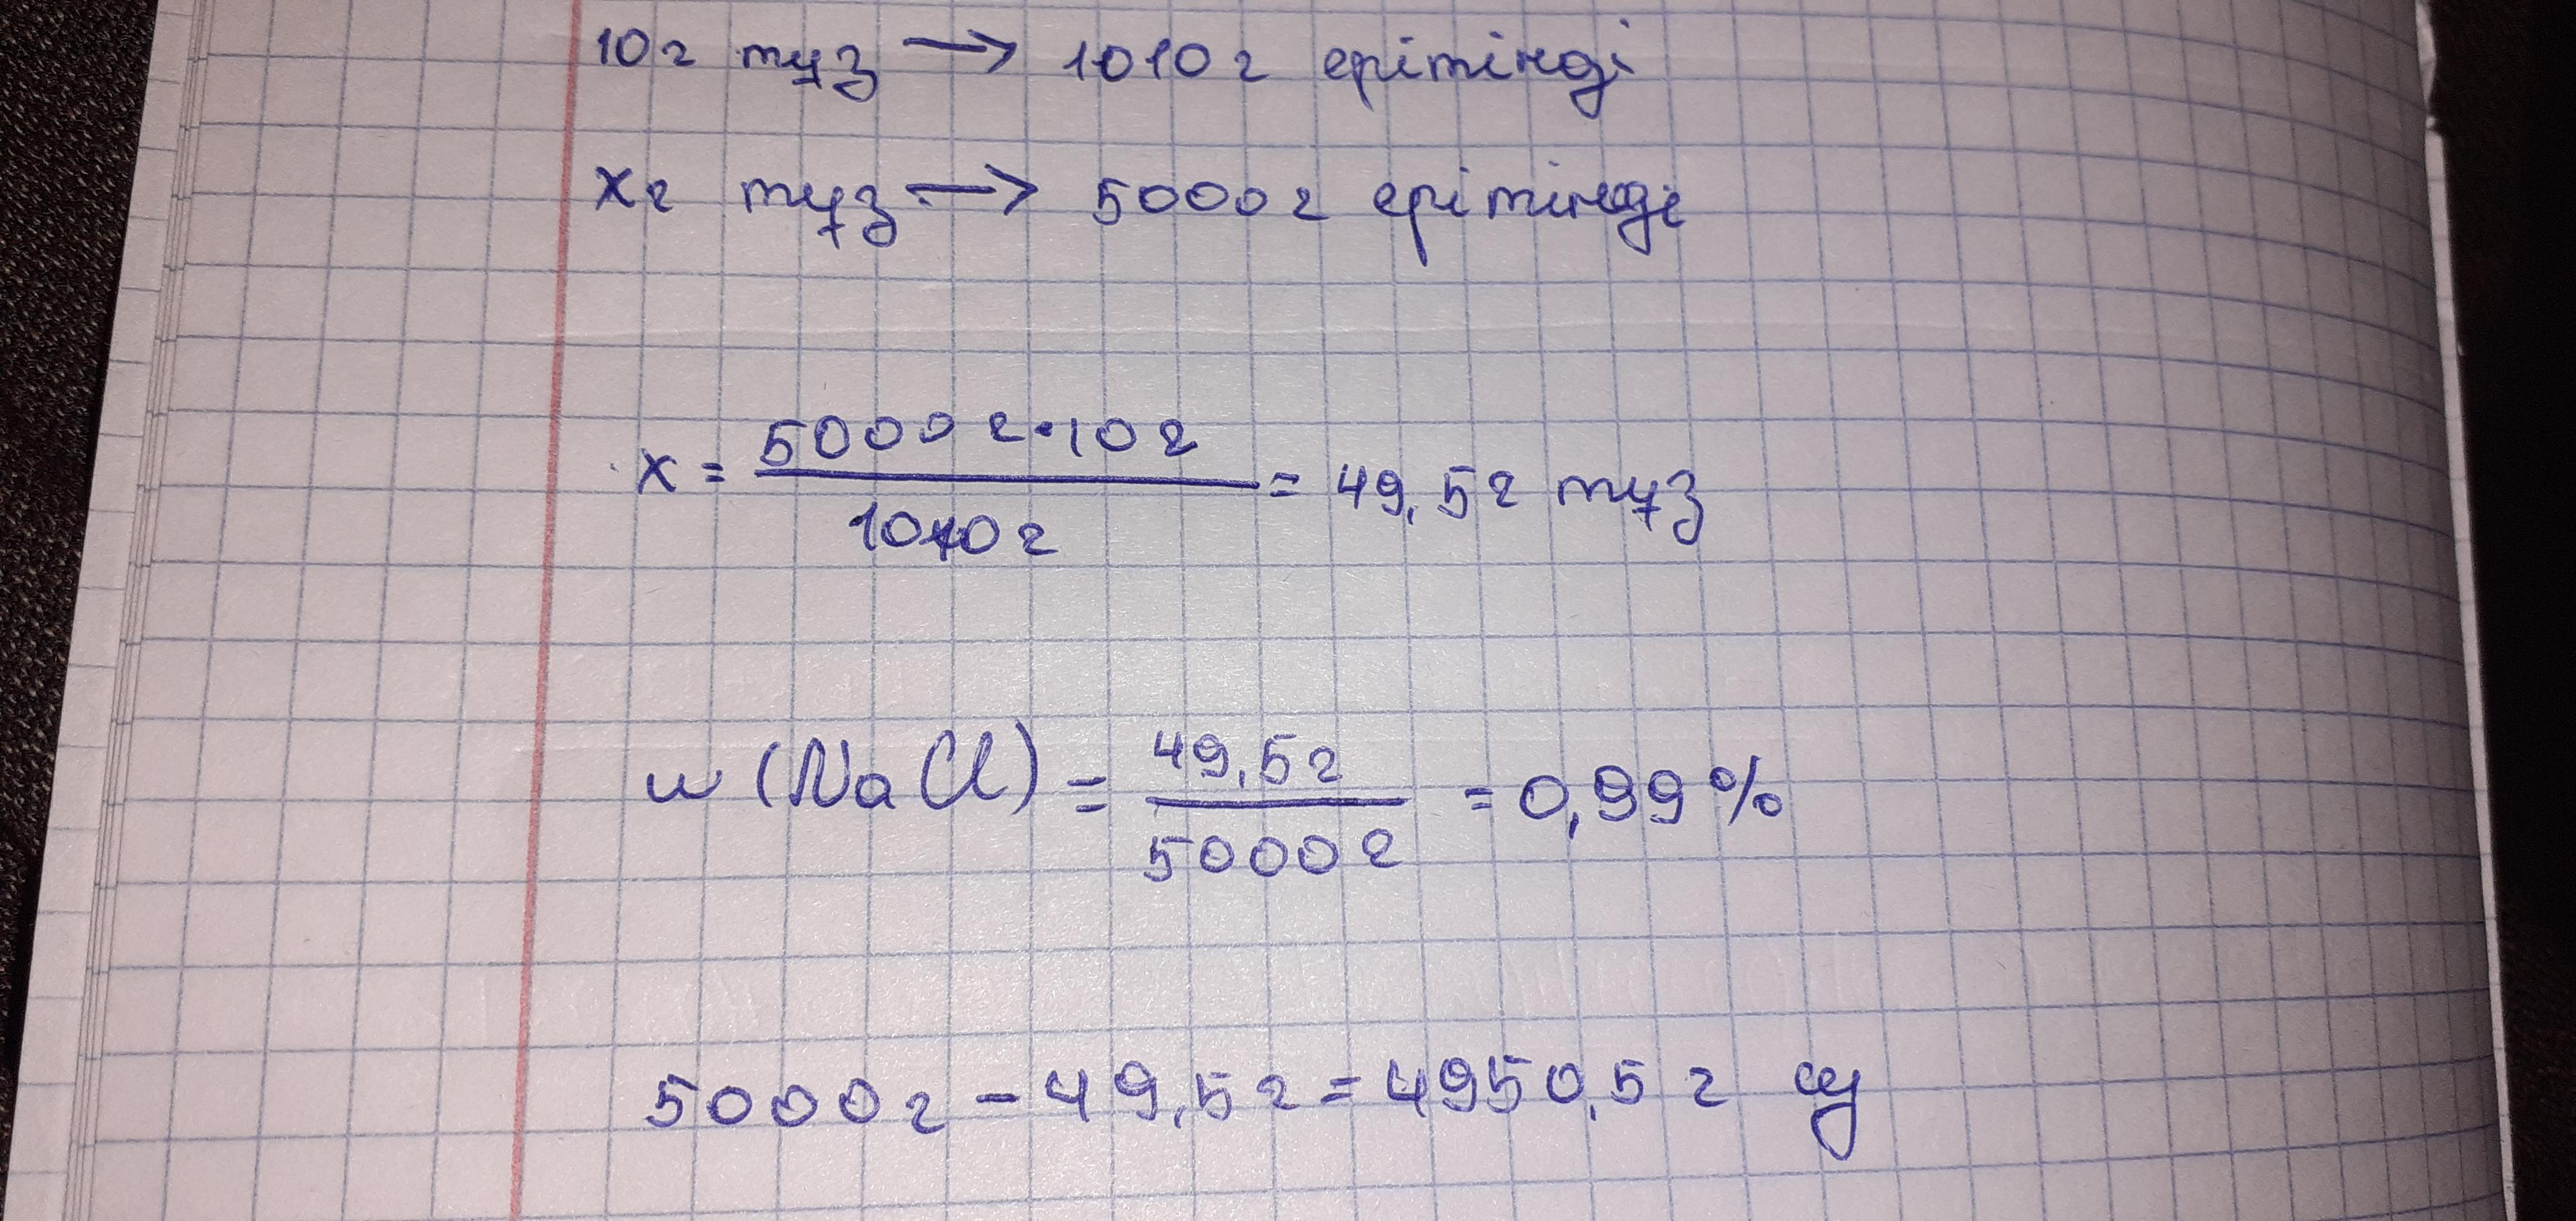 10г тұз → 1010г ерітінді
Xг тұз → 5000г ерітінді
x = 5000г·10г / 1010г = 49,5г тұз
w (NaCl) = 49,5г / 5000г = 0,99%
5000г - 49,5г = 4950,5г су